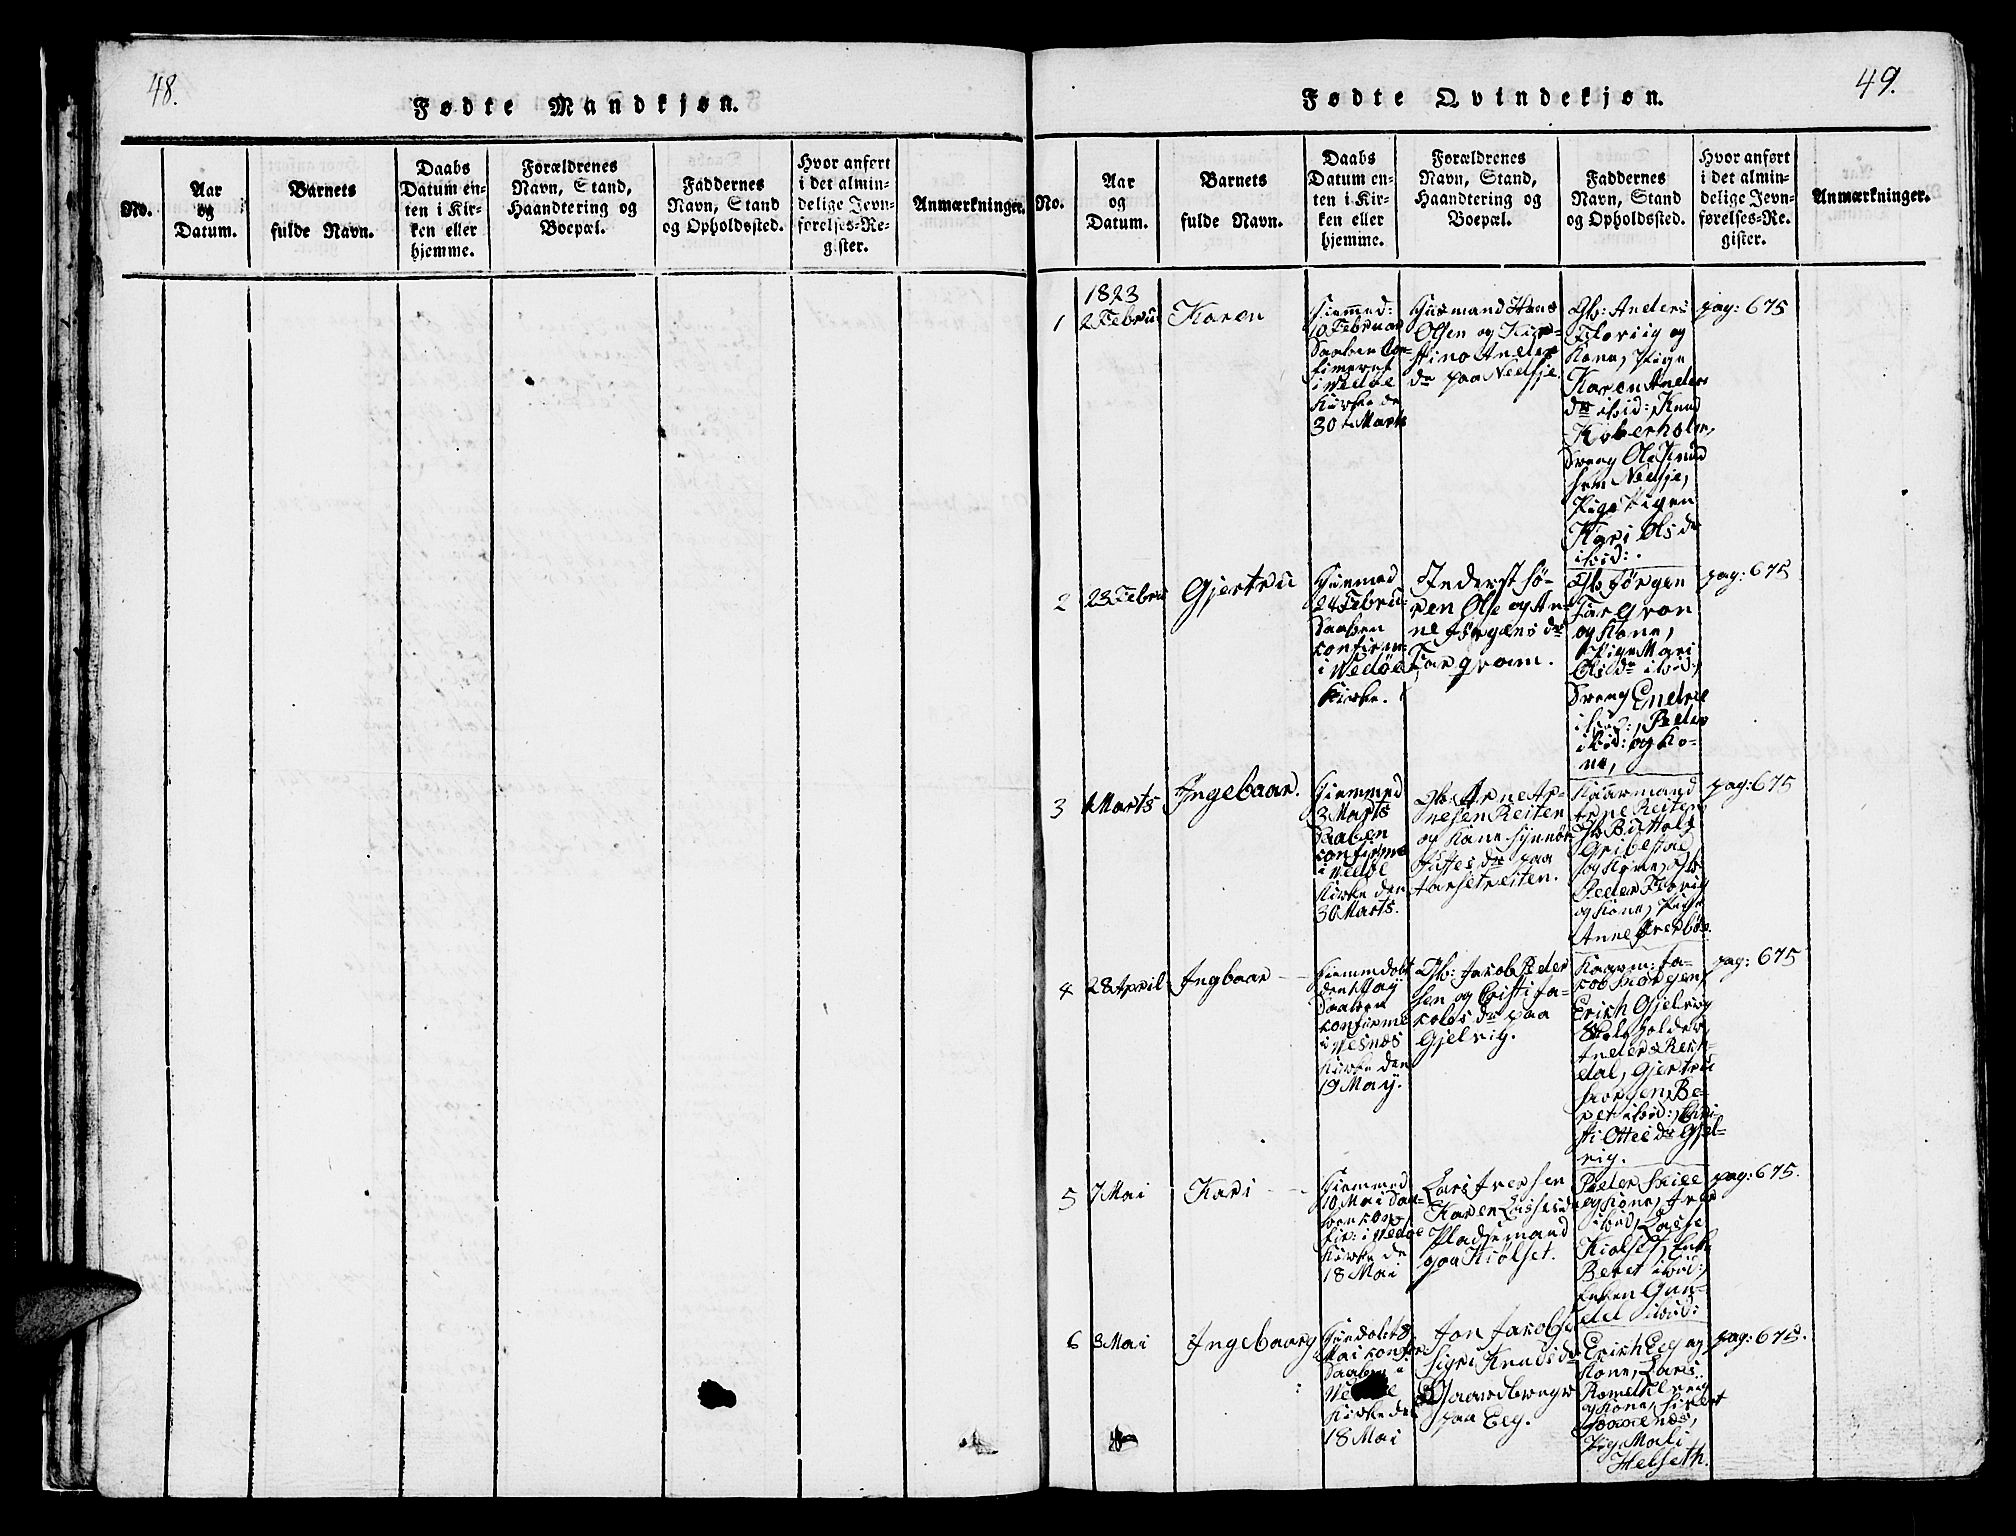 48.
Fødte Mandkjøn.
No.
Aar
og
Datum.
Barnets
fulde Navn.
Daabs
Datum en-
ten i Kir-
ken eller
hjemme.
Forældrenes
Navn, Stand,
Haandtering og
Boepæl.
Faddernes
Navn, Stand
og Opholdssted.
Hvor anført
i det almin-
delige Jevn-
førelses-Re-
gister.
Anmærkninger.
49.
Fødte Qvindekjøn.
No.
Aar
og
Datum.
Barnets
fulde Navn.
Daabs
Datum en-
ten i Kir-
ken eller
hjemme.
Forældrenes
Navn, Stand,
Haandtering og
Boepæl.
Faddernes
Navn, Stand
og Opholdssted.
Hvor anført
i det almin-
delige Jevn-
førelses-Re-
gister.
Anmærkninger.
1823
1
2 Februa
Karen
Hiemmed:
10 Februar
Daaben Con-
firmeret
i Wedøe
Kirke de
30te Marts
Huusmand Hans
Olsen og Kir-
stine Anders
dr paa Nedsje
Gb: Anders
Flovig og
Kone, Pige
Karen Anders
dr ibid:, Knud
Koberholm,
Dreng Ole Knud
sen Nedsje,
Pige Pigen
Kari Ols dr
ibid:.
pag: 675
2
23 Febru
Gjertru
Hiemmed
24 Febru:
Daaben
confirm:
i Wedøe
Kirke.
Inderst Sø-
ren Olse og An-
ne Jørgens dr
Fargroam.
Gb Jørgen
Fargroam
og Kone,
Pige Mari
Ols dr ibid:,
Dreng Endre
ibid:, Peder
ibid: og Ko-
ne,
pag: 675
3
1 Marts
Ingebaar.
Hiemmed
3 Marts
Daaben
confirme
i Wedøe
Kirke den
30 Marts.
Gb: Arne Ar-
nesen Reiten
og Kone Synnøv
dr paa
Reiten
og Kone, Gb
Peder Flovig
og Kone, Pige
Anne
pag: 675
4
28 April
Ingbaar
Hiemmedøbt
den 1 May
Daaben
confirme
i Wesnæs
Kirke den
19 May.
Gb: Jakob Peder
sen og Cristi Ja-
kobs dr paa
Gjelvig.
Kaarm: Ja-
kob
Erich Gjelvig
Anders
dal, Gjertru
Be-
ret ibid:, Kri
sti Ottes dr Gjel-
vig.
pag: 675
5
7 Mai
Kari
Hiemmed
10 Mai Daa-
ben con-
fir: i Wedøe
Kirke de
18 Mai
Lars Iversen
Karen Lasses dr
Pladsemand
paa Kiølset.
Peder
og Kone, Iver
ibid, Lasse
Kiølset, Enke
Beret ibid:,
Enken Gun-
del ibid:
pag: 675.
6
3 Mai
Ingebaarg
Hiemdøbt 8
Mai confir
Daaben i
Kirke de
18 Mai
Jon Jakobse
Sigri Knuds dr
Gaardbruger
paa Eeg.
Erich Eeg og
Kone, Lars
og Kone,
Pige Mali
Helseth.
pag: 675.